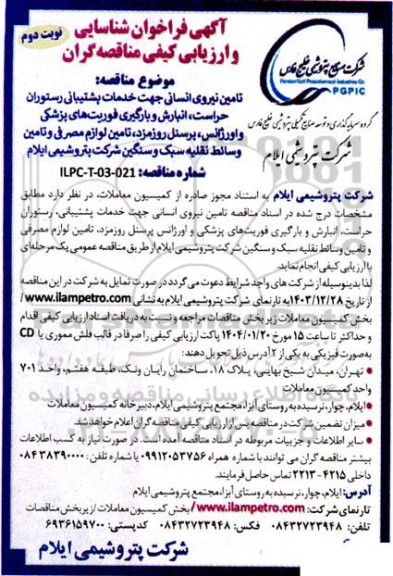 نوبت دوم
آگهی فراخوان شناسایی
و ارزیابی کیفی مناقصه گران
شرکت صنایع پتروشیمی خلیج فارس
Persian Gulf Petrochemical Industries Co.
PGPIC
گروه سرمایه گذاری و توسعه صنایع تکمیلی پتروشیمی خلیج فارس
شرکت پتروشیمی ایلام
موضوع مناقصه:
تامین نیروی انسانی جهت خدمات پشتیبانی رستوران
حراست، انبارش و بارگیری فوریت‌های پزشکی
و اورژانس، پرسنل روزمزد، تامین لوازم مصرفی و تامین
وسائط نقلیه سبک و سنگین شرکت پتروشیمی ایلام
شماره مناقصه: ILPC-T-03-021
شرکت پتروشیمی ایلام به استناد مجوز صادره از کمیسیون معاملات، در نظر دارد مطابق
مشخصات درج شده در اسناد مناقصه تامین نیروی انسانی جهت خدمات پشتیبانی، رستوران
حراست، انبارش و بارگیری فوریت‌های پزشکی و اورژانس پرسنل روزمزد، تامین لوازم مصرفی
و تامین وسائط نقلیه سبک و سنگین شرکت پتروشیمی ایلام از طریق مناقصه عمومی یک مرحله‌ای
با ارزیابی کیفی انجام نماید.
لذا بدینوسیله از شرکت های واجد شرایط دعوت می گردد در صورت تمایل به شرکت در این مناقصه
از تاریخ ۱۴۰۳/۱۲/۲۸ به تارنمای شرکت پتروشیمی ایلام به نشانی www.ilampetro.com/
بخش کمیسیون معاملات زیر بخش مناقصات مراجعه و نسبت به دریافت اسناد ارزیابی کیفی اقدام
و حداکثر تا ساعت ۱۵ مورخ ۱۴۰۴/۰۱/۲۰ پاکت ارزیابی کیفی را صرفا در قالب فلش مموری یا CD
به صورت فیزیکی به یکی از ۲ آدرس ذیل تحویل دهند:
• تهران، میدان شیخ بهایی، پلاک ۱۸، ساختمان رایان ونک، طبقه هفتم، واحد ۷۰۱
واحد کمیسیون معاملات
• ایلام، چوار، نرسیده به روستای آبزا، مجتمع پتروشیمی ایلام، دبیرخانه کمیسیون معاملات
• میزان تضمین شرکت در مناقصه پس از ارزیابی کیفی مناقصه گران اعلام خواهد شد.
• سایر اطلاعات و جزییات مربوطه در اسناد مناقصه آمده است. در صورت نیاز به کسب اطلاعات
بیشتر مناقصه گران می توانند با شماره همراه ۰۹۹۱۲۰۵۳۷۵۶ یا شماره تلفن: ۰۸۴۳۸۳۹۰۰۰۰
داخلی ۴۲۱۵-۲۲۱۳ تماس حاصل فرمایند.
آدرس: ایلام، چوار، نرسیده به روستای آبزا، مجتمع پتروشیمی ایلام
تارنمای شرکت: www.ilampetro.com/ بخش کمیسیون معاملات / زیر بخش مناقصات
تلفن: ۰۸۴۳۲۷۲۳۹۴۸ فکس: ۰۸۴۳۲۷۲۳۹۴۸ کدپستی: ۶۹۳۶۱۵۹۷۰۰
شرکت پتروشیمی ایلام